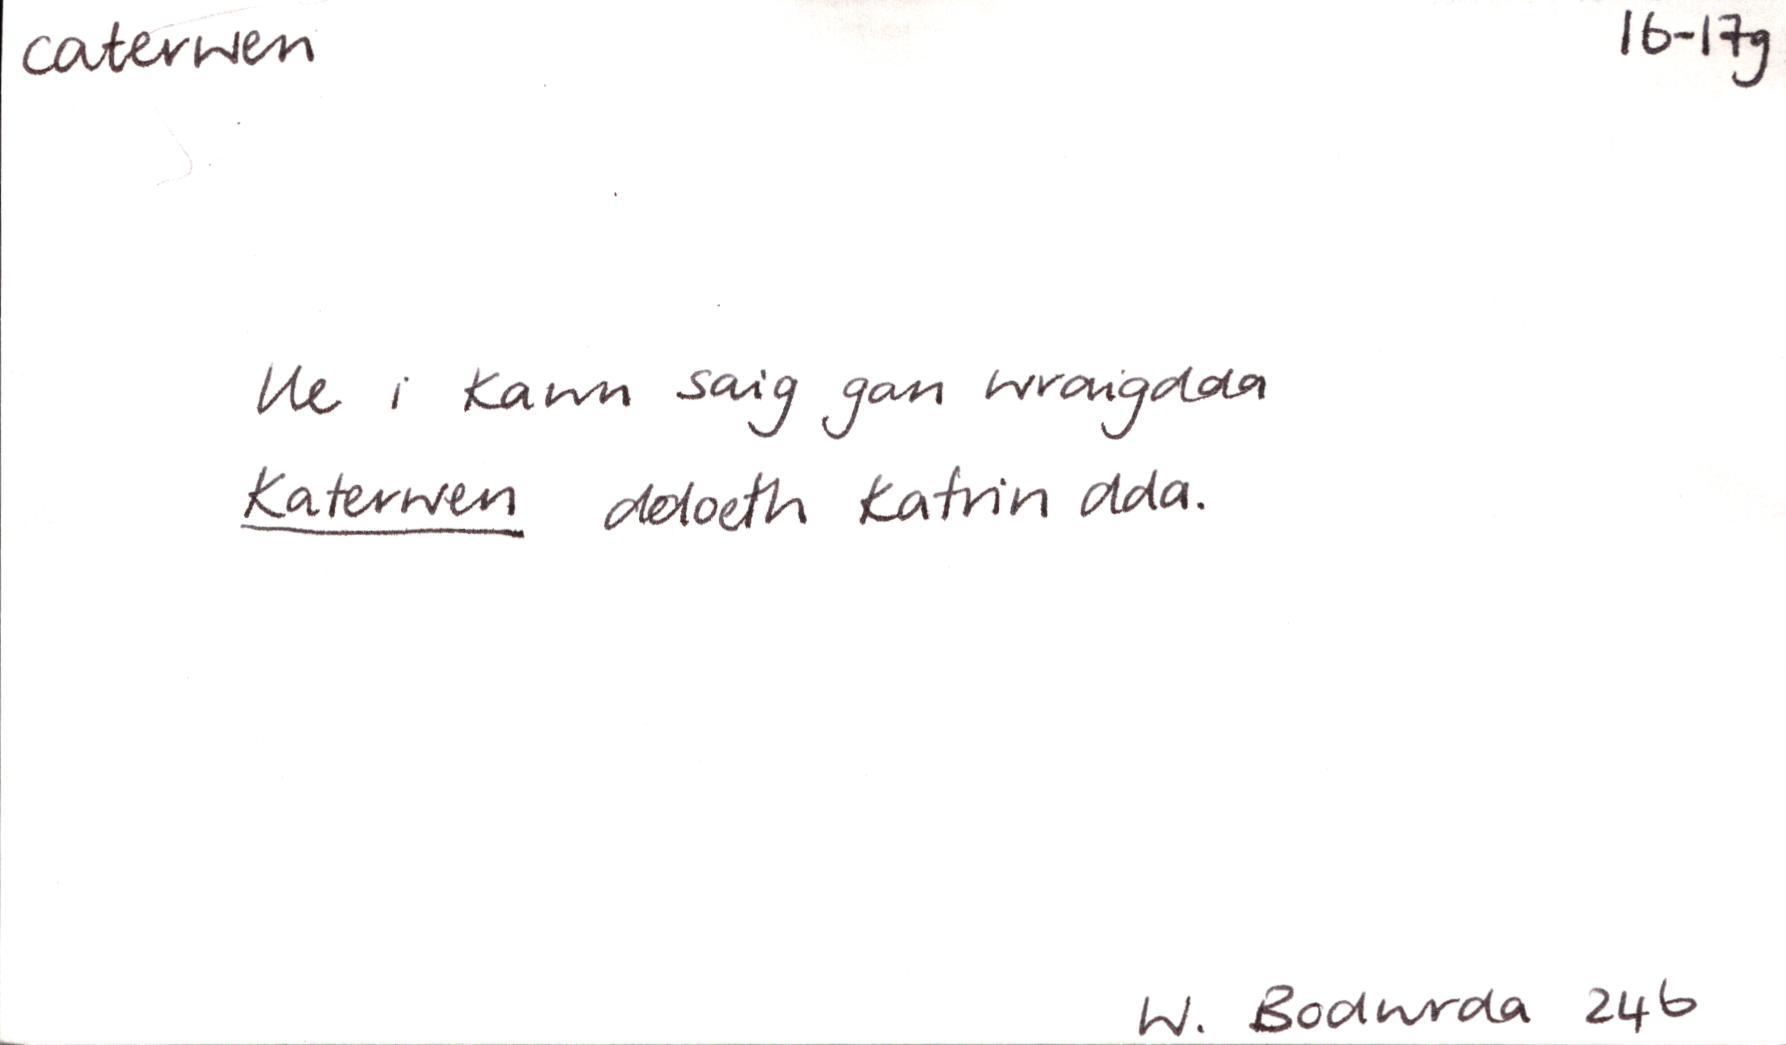 caterwen
16-17g
lle i kawn saig gan wraigdda
Katerwen ddoeth Katrin dda.
W. Bodwrda 246